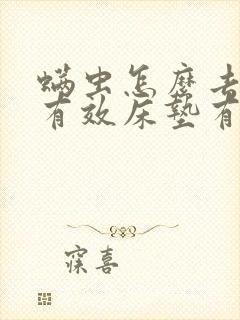 螨虫怎麽去
有效床垫有
寐喜